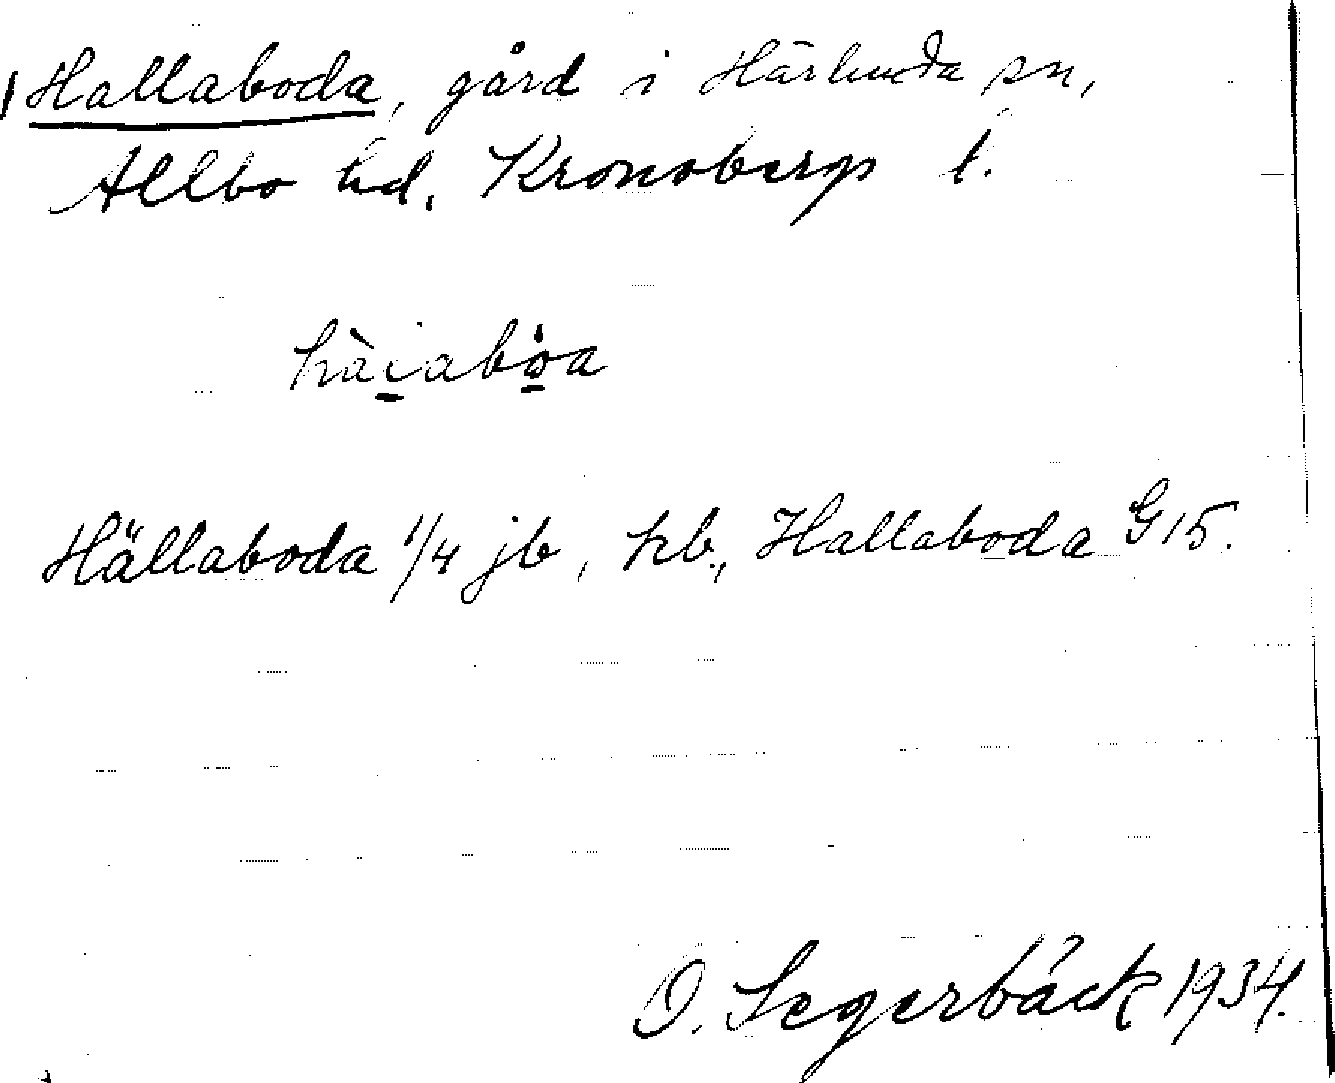 Hallaboda, gård i Härlunda sn,
Allbo hd, Kronobergs l.
hàiabòa
Hällaboda 1/4 jb, hb., Hallaboda G 15.
O. Segerbäck 1934.